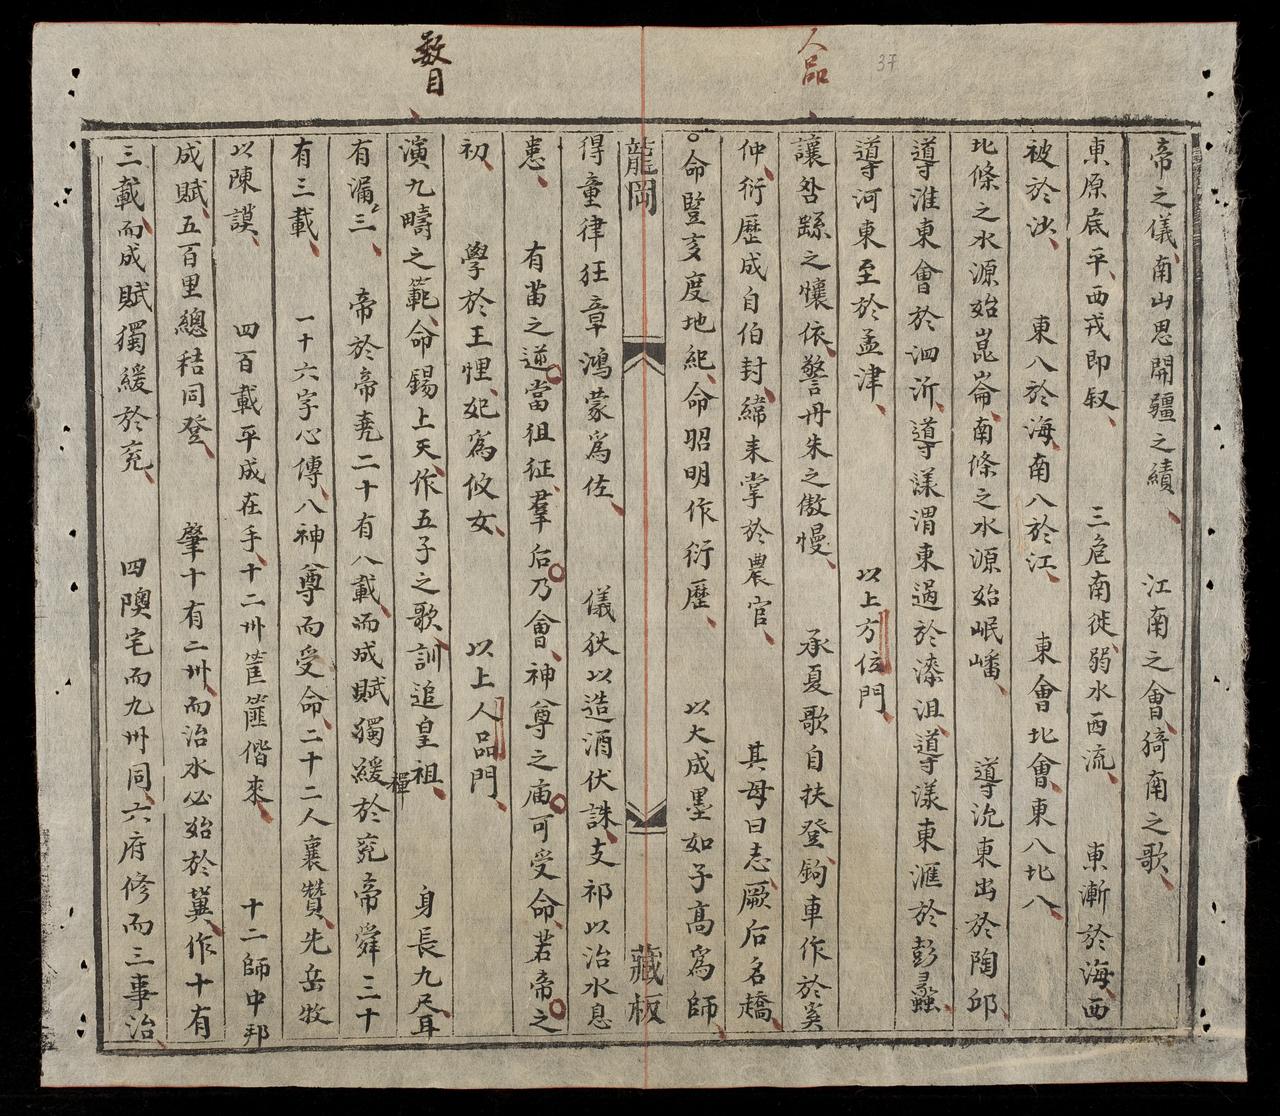 人品
37
數目
帝之儀南山思開疆之績　江南之會猗南之歌
東原底平西戎即叙　三危南徙弱水西流　東漸於海西
被於沙　東八於海南八於江　東會北會東八北八
北條之水源始崑崙南條之水源始岷嶓　導沇東出於陶邱
導淮東會於泗沂導漾渭東過於漆沮導漾東滙於彭蠡
導河東至於孟津　以上方位門
讓咎繇之懷依警丹朱之傲慢　承夏歌自扶登鉤車作於奚
仲衍歷成自伯封緯耒掌於農官　其母曰志厥后名趫
命豎亥度地紀命昭明作衍歷　以大成墨如子高為師
龍岡　藏板
得童律狂章鴻蒙為佐　儀狄以造酒伏誅支祁以治水息
恚　有苗之逆當徂征羣后乃會神尊之庙可受命若帝之
初　學於王悝妃為攸女　以上人品門
演九疇之範命錫上天作五子之歌訓追皇祖　身長九尺耳
有漏三　帝於帝堯二十有八載而成賦獨緩於兖帝舜三十
禪
有三載　一十六字心傳八神尊而受命二十二人襄贊先岳牧
以陳謨　四百載平成在手十二州筐篚偕來　十二師中邦
成賦五百里總秸同登　肇十有二州而治水必始於冀作十有
三載而成賦獨緩於兖　四隩宅而九州同六府修而三事治